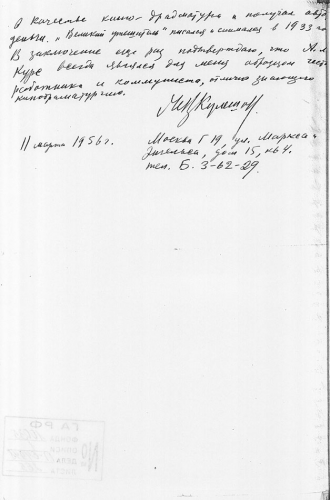 в качестве кино-драматурга и получал авто
деньги. "Великий утешитель" писался и снимался в 1933 го
В заключение еще раз подтверждаю, что А.Л.
Курс всегда являлся для меня образцом чест
работника и коммуниста, отлично знающего
кинодраматургию.
Кулешов
11 марта 1956 г.
Москва Г 19, ул. Маркса и
Энгельса, дом 15, кв 4.
тел. Б. 3-62-29.
ГА РФ
ФОНДА
ОПИСИ
№ ДЕЛА
ЛИСТА